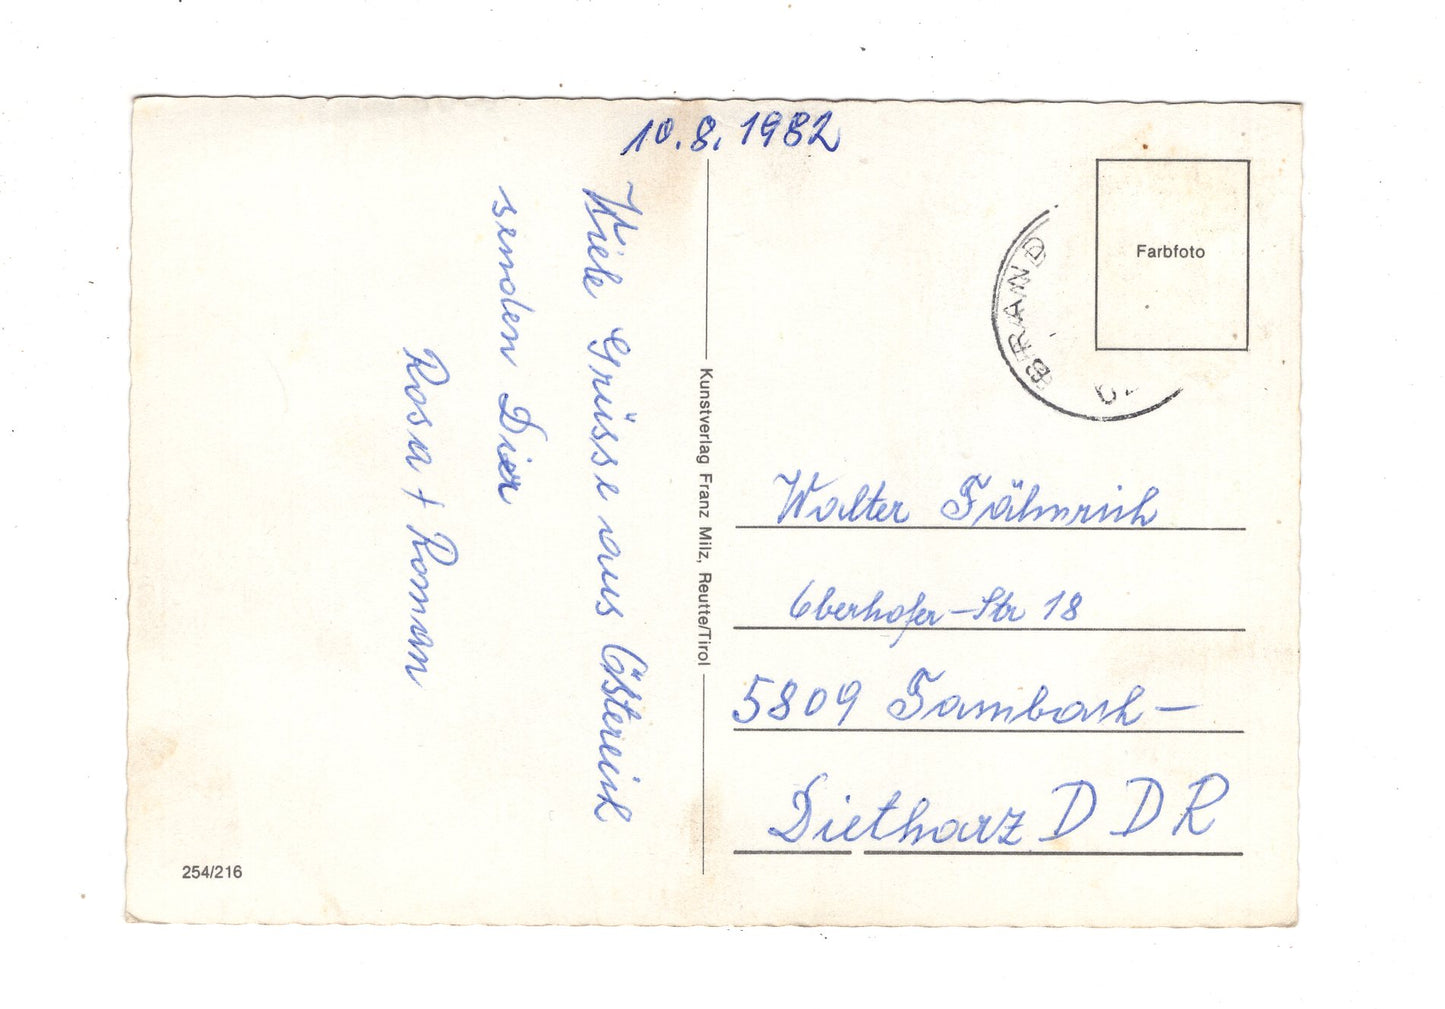 10.8.1982
Viele Grüsse aus Östereich
senden Dier
Rosa + Roman
Kunstverlag Franz Milz, Reutte/Tirol
254/216
Farbfoto
BRAND
Walter Fähnrich
Oberhofer-Str 18
5809 Tambach-
Dietharz DDR